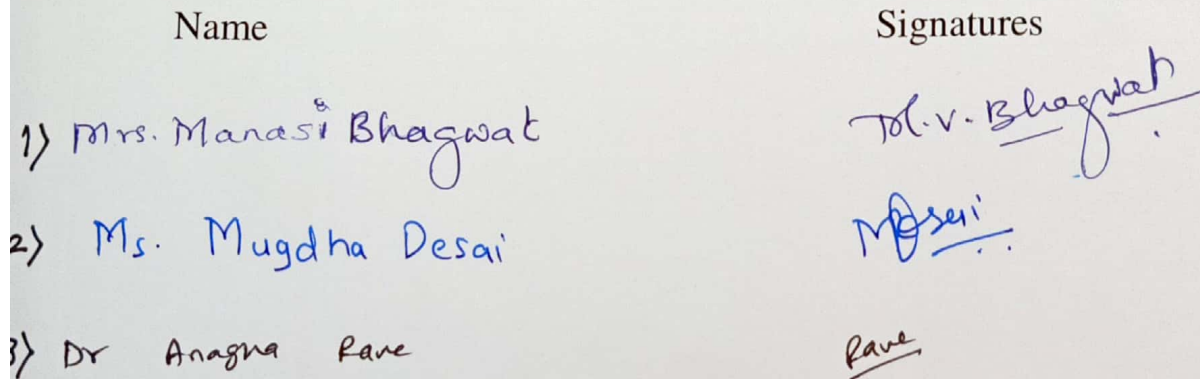 Name Signatures
1) Mrs. Manasi Bhagwat M.V. Bhagwat
2) Ms. Mugdha Desai
3) Dr Anagha Rane Rane